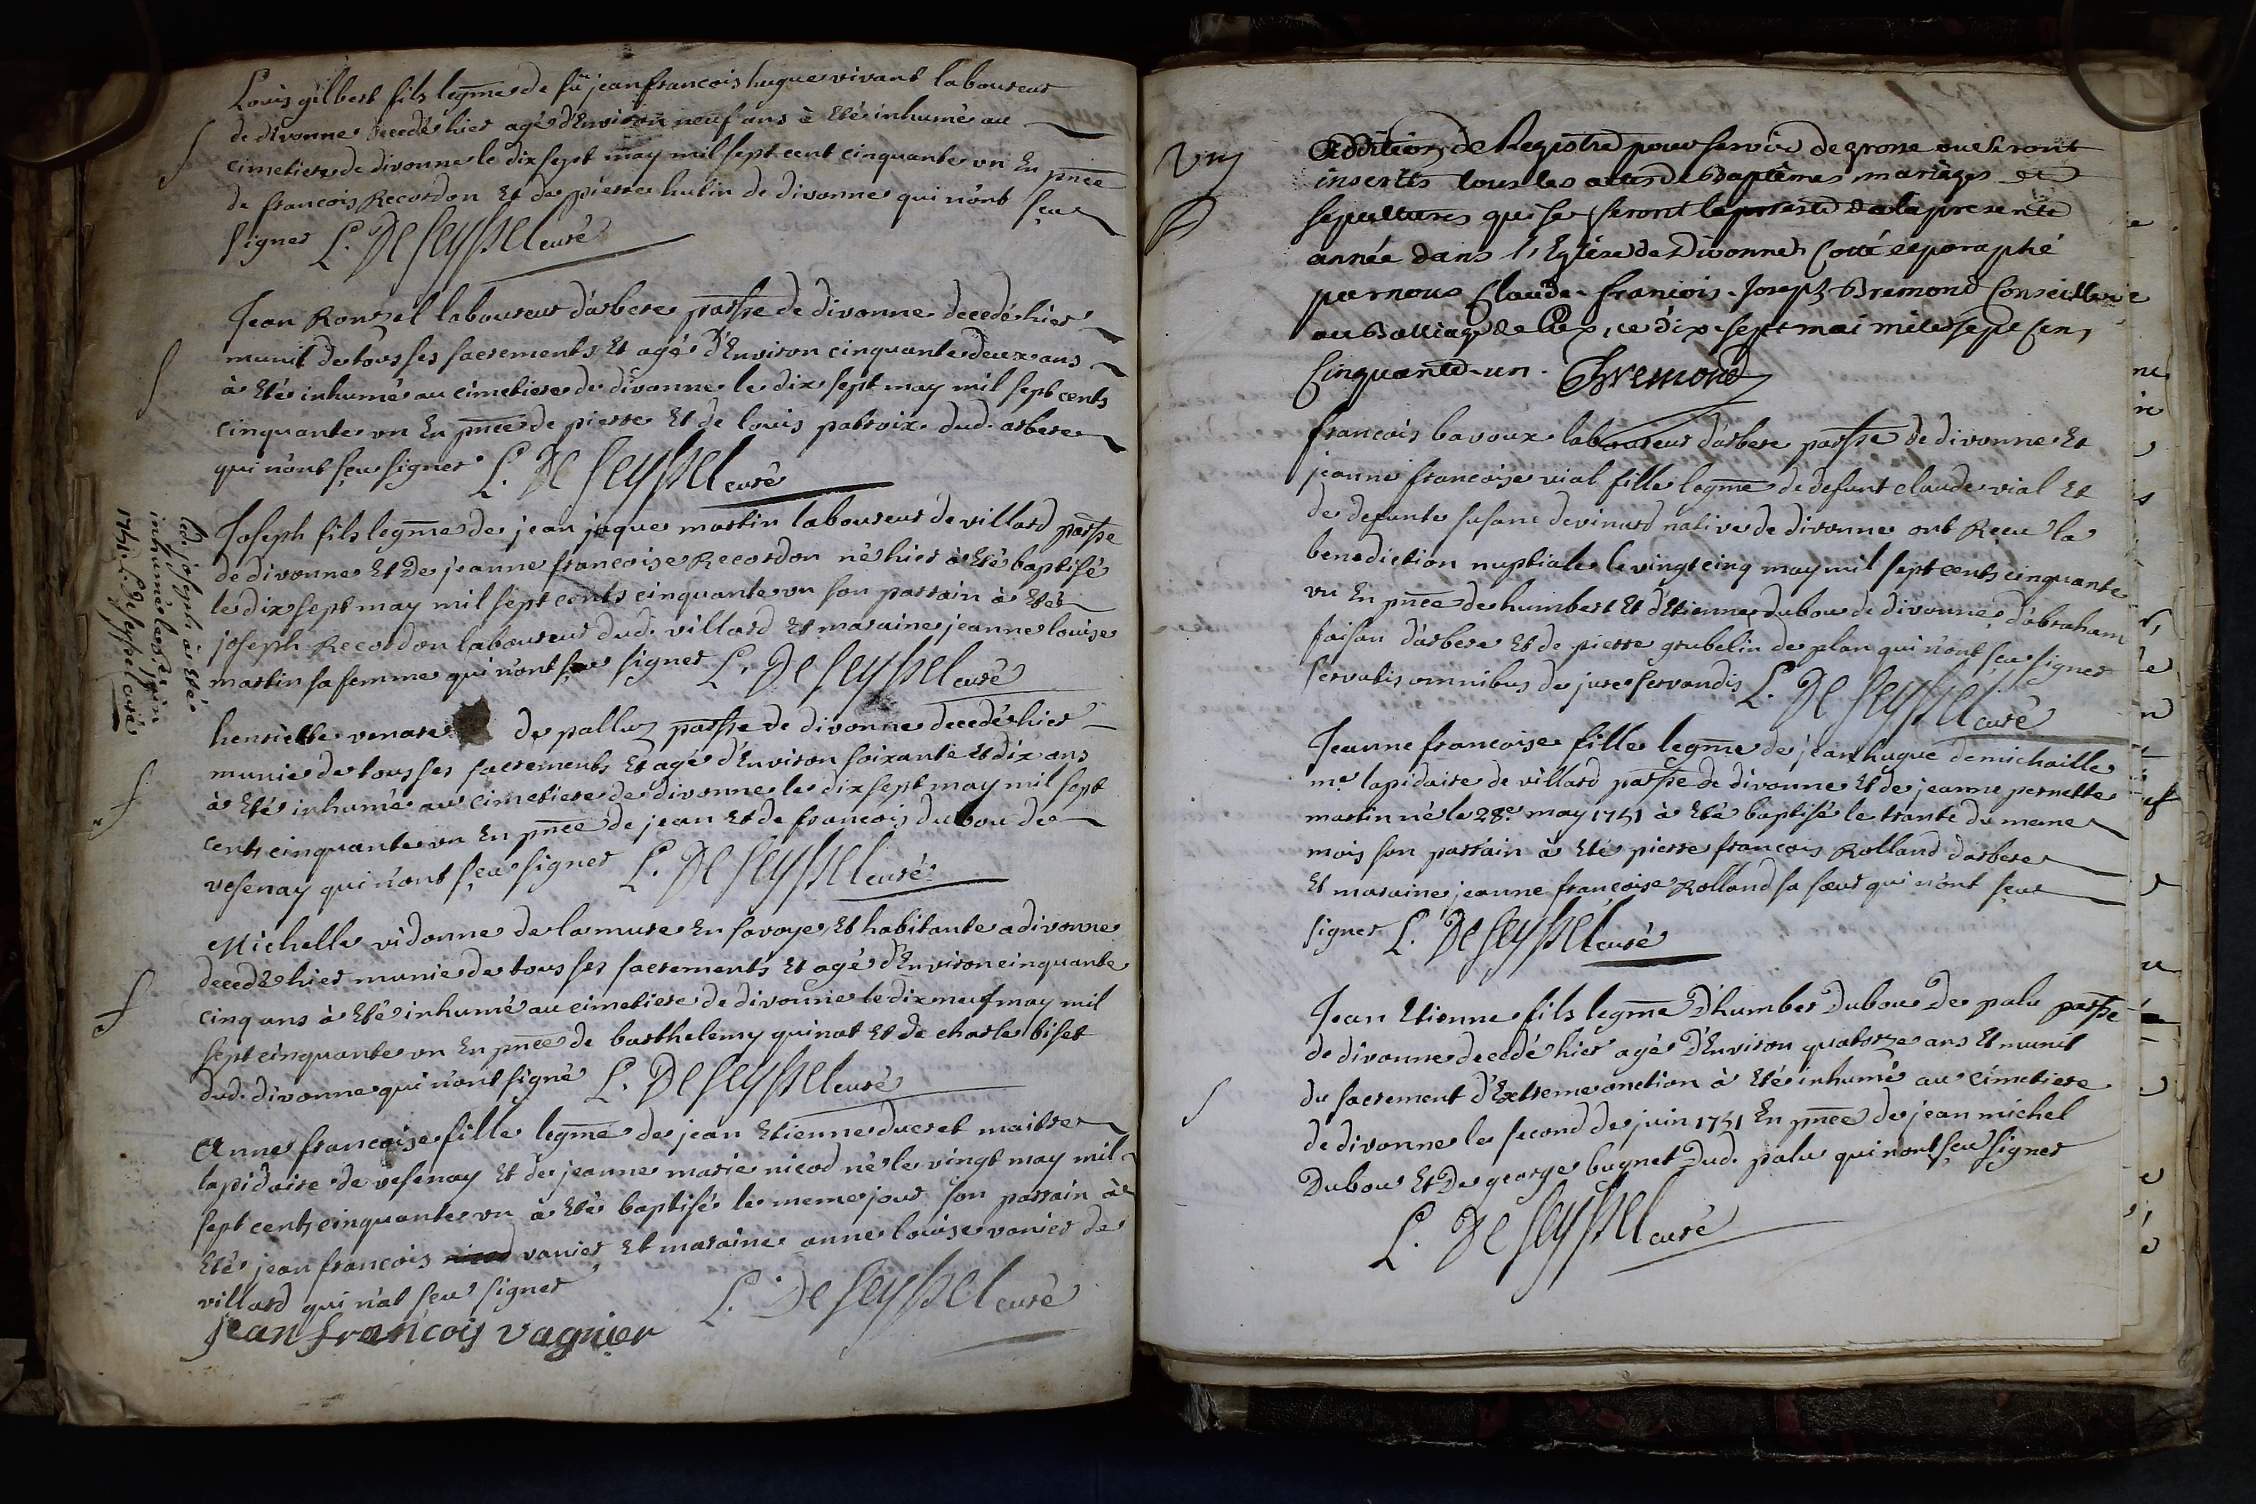 Louis gilbert fils legme de fü jean francois hugue vivant laboureur
de divonne decedé hier agé d'Environ neuf ans à Eté inhumé au
cimetiere de divonne le dix sept may mil sept cent cinquante un En pnce
de francois Recordon Et de pierre hutin de divonne qui n'ont sçeu
signer L. De Seyssel curé
Jean Ronzel laboureur d'arbere parsse de divonne decedé hier
munit de tous ses sacrements Et agé d'Environ cinquante deux ans
à Eté inhumé au cimetiere de divonne le dix sept may mil sept cents
cinquante un En pnce de pierre Et de louis patroix dud. arbere
qui n'ont sçeu signer L. De Seyssel curé
Joseph fils legme de jean jaque martin laboureur de villard parsse
de divonne Et De jeanne francoise Recordon né hier à Eté baptisé
le dix sept may mil sept cents cinquante un son parrain à Eté
joseph Recordon laboureur dud. villard Et maraine jeanne louise
martin sa femme qui n'ont sçeu signer L. De Seyssel curé
led. joseph à Eté
inhumé le 5e juin
1751. L. De Seyssel curé
henriette venare de palluz parsse de divonne decedé hier
munie de tous ses sacrements Et agé d'Environ soixante Et dix ans
à Eté inhumé au cimetiere de divonne le dix sept may mil sept
cents cinquante un En pnce de jean Et de francois dubou de
vesenay qui n'ont sçeu signer L. De Seyssel curé
Michelle vidonne de la mure En savoye, Et habitante a divonne
decedé hier munie de tous ses sacrements Et agé d'Environ cinquante
cinq ans à Eté inhumé au cimetiere de divonne le dix neuf may mil
sept cinquante un En pnce de barthelemy quinat Et de charle biset
dud. divonne qui n'ont signé L. De Seyssel curé
Anne francoise fille legme de jean Etienne ducret maitre
lapidaire de vesenay Et de jeanne marie nicod né le vingt may mil
sept cents cinquante un à Eté baptisé le meme jour son parrain à
Eté jean francois vanier Et maraine anne louise vanier de
villard qui n'at sçeu signer
L. De Seyssel curé
jean françois vagnier
Addition de Registre pour servir de grosse ou seront
inserits tous les actes de Baptêmes mariages et
sepultures qui se feront le present de la presente
année dans l'Eglise de Divonne Cotté et paraphé
par nous Claude-françois-Joseph Bremond Conseiller
au Balliage de Gex, ce dix-sept mai mille sept cen,
Cinquante-un. Bremond
françois bavoux laboureur d'arbere parsse de divonne Et
jeanne francoise vial fille legme de defunt claude vial Et
de defunte susane devinurd native de divonne ont Receu la
benediction nuptiale le vingt cinq may mil sept cents cinquante
un En pnce de humbert Et d'Etienne dubou de divonne, d'abraham
foisan d'arbere Et de pierre grubelin de plan qui n'ont sçeu signer
servatis omnibus de jure servandis L. De Seyssel curé
Jeanne francoise fille legme de jean hugue demichaille
me lapidaire de villard parsse de divonne Et de jeanne pernette
martin né le 28e may 1751 à Eté baptisé le trante du meme
mois son parrain à Eté pierre francois Rolland d'arbere
Et maraine jeanne françoise Rolland sa sœur qui n'ont sçeu
signer L. De Seyssel curé
Jean Etienne fils legme D'humber Dubou De palu parsse
de divonne decedé hier agé D'Environ quatorze ans Et munit
du sacrement d'Extreme onction à Eté inhumé au cimetiere
de divonne le second de juin 1751 En pnce de jean michel
Dubou Et De george bugnet Dud. palu qui n'ont sçeu signer
L. De Seyssel curé